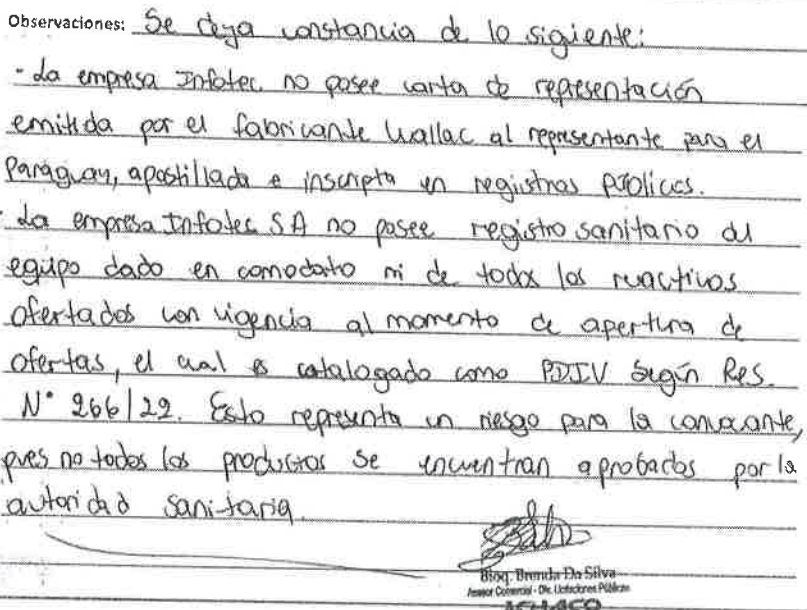 Observaciones: Se deja constancia de lo sigiente:
- La empresa Infotec no posee carta de representación
emitida por el fabricante Wallac al representante para el
Paraguay, apostillada e inscripta en registros públicos.
- La empresa Infotec SA no posee registro sanitario del
equipo dado en comodato ni de todos los reactivos
ofertados con vigencia al momento de apertura de
ofertas, el cual es catalogado como PDIV según Res.
N° 266/22. Esto representa un riesgo para la convocante,
pues no todos los productos se encuentran aprobados por la
autoridad sanitaria.
Bioq. Brenda Da Silva
Asesor Comercial - Dto. Licitaciones Públicas